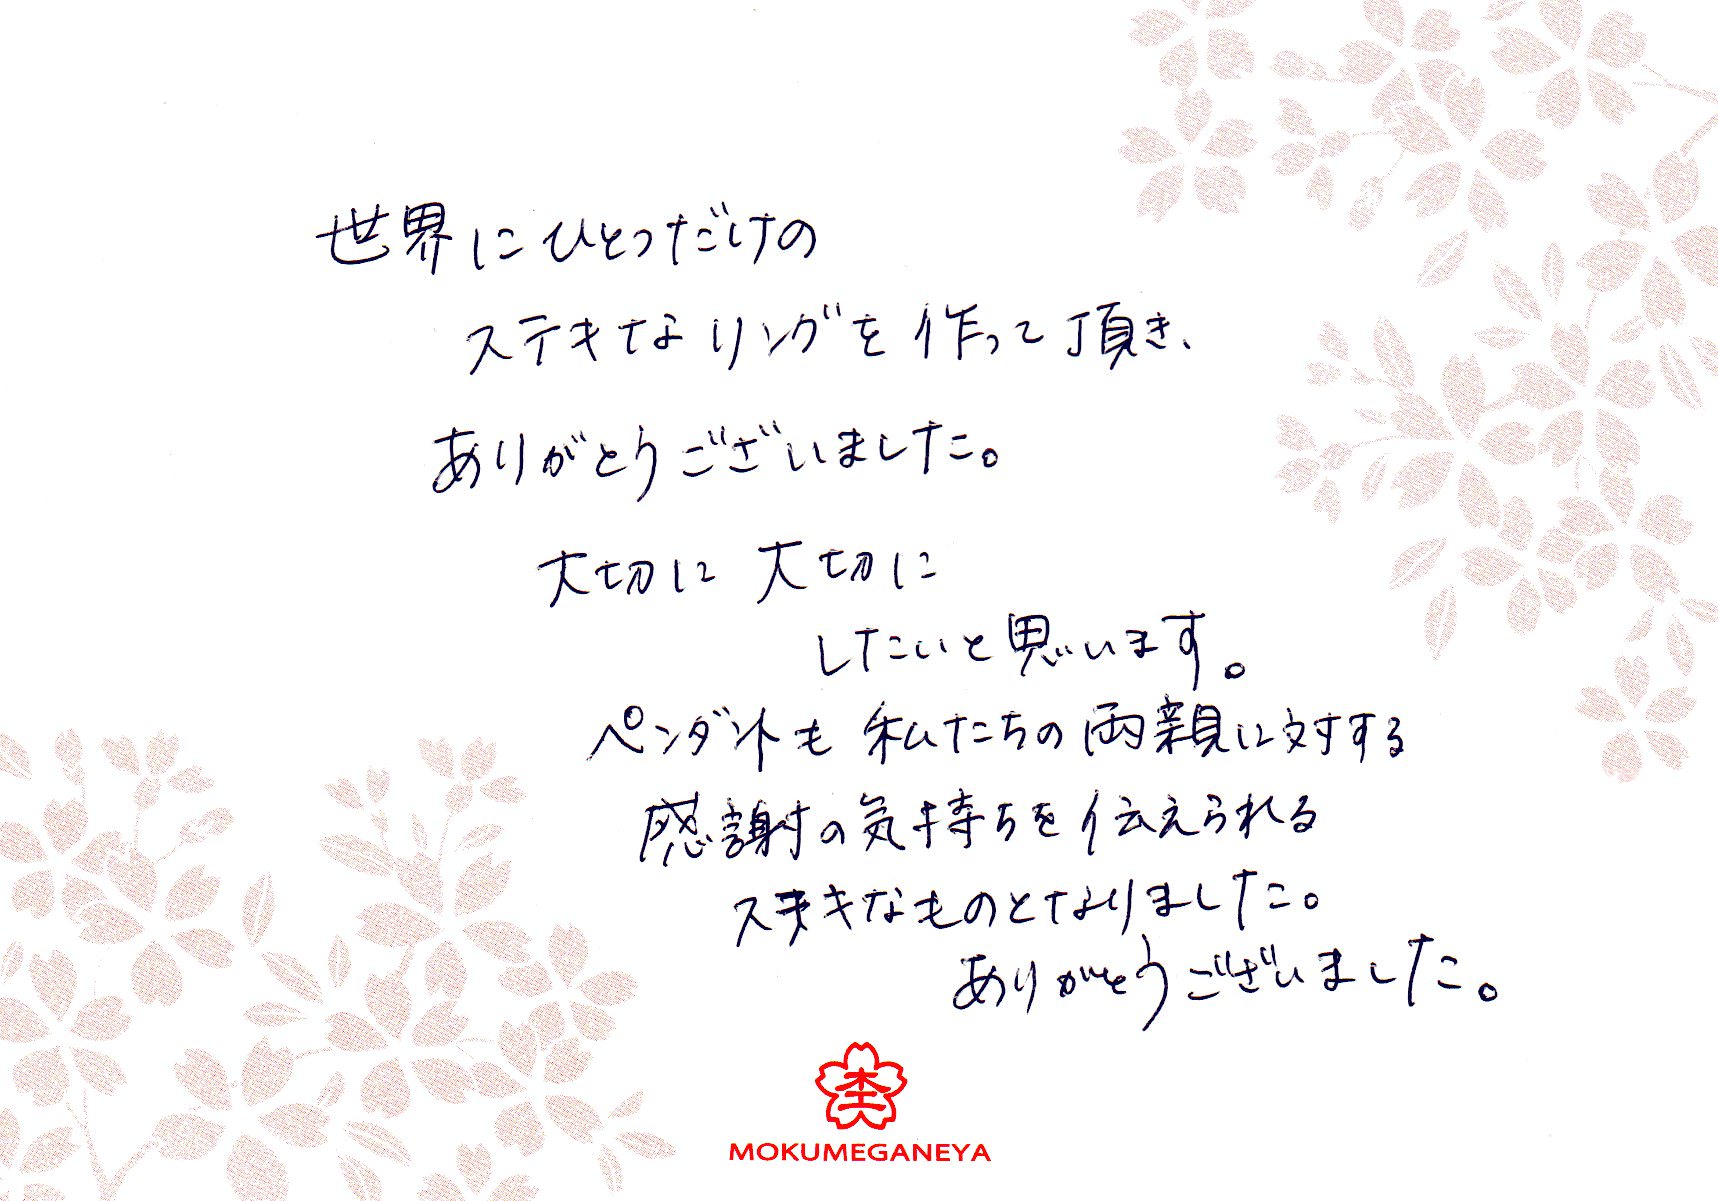 世界にひとつだけの
ステキなリングを作って頂き、
ありがとうございました。
大切に 大切に
したいと思います。
ペンダントも 私たちの両親に対する
感謝の気持ちを伝えられる
ステキなものとなりました。
ありがとうございました。
MOKUMEGANEYA